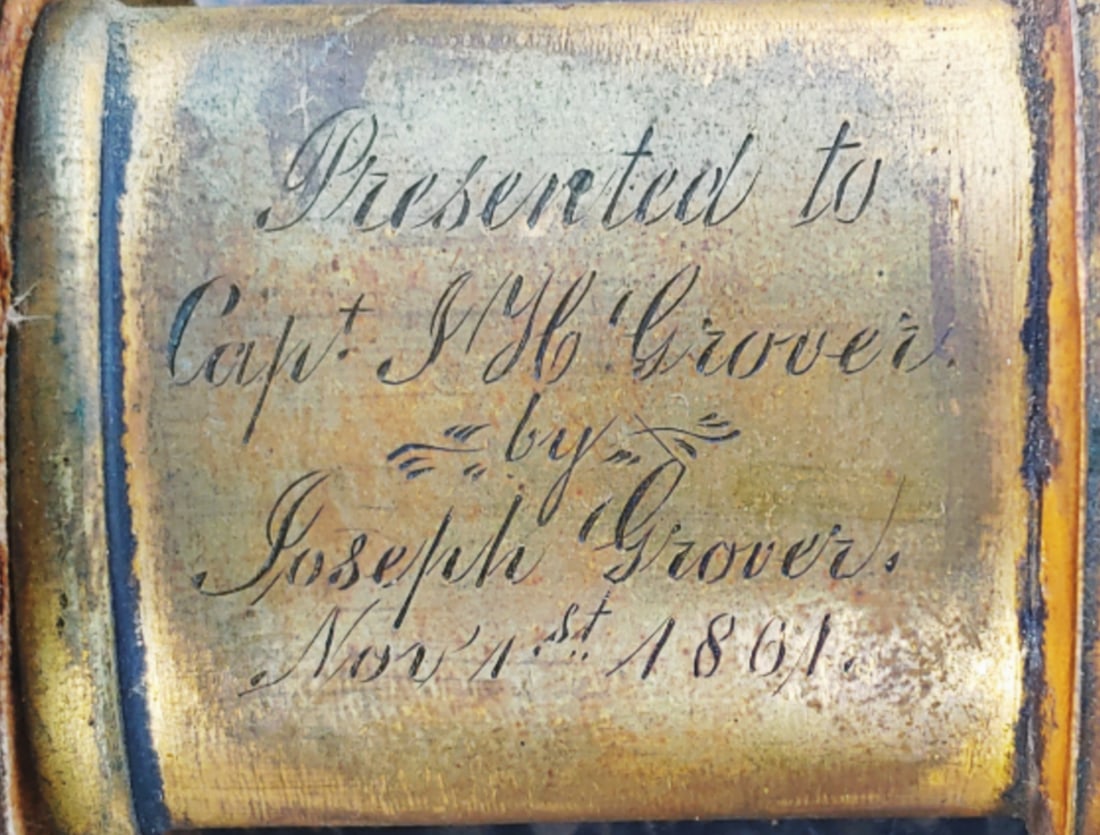 Presented to
Capt. J H Grover.
by
Joseph Grover.
Nov 1st. 1861.